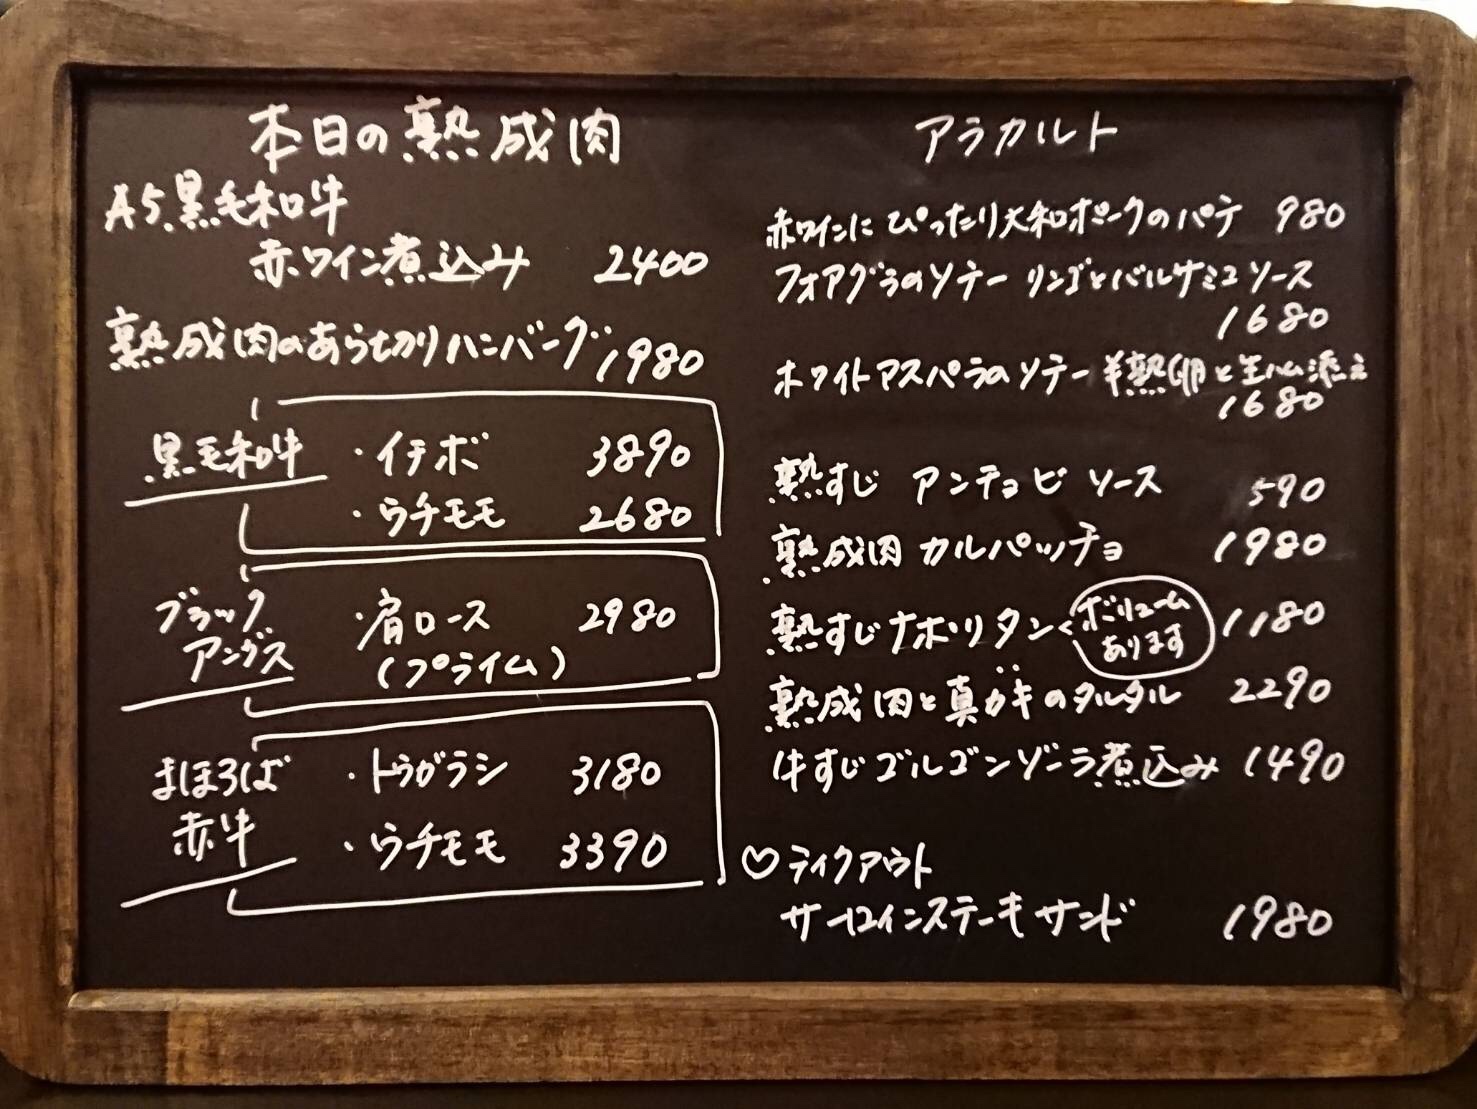 本日の熟成肉
A5黒毛和牛
赤ワイン煮込み 2400
熟成肉のあら切りハンバーグ 1980
黒毛和牛 ・イチボ 3890
・ウチモモ 2680
ブラック
アンガス ・肩ロース 2980
(プライム)
まほろば
赤牛 ・トウガラシ 3180
・ウチモモ 3390
アラカルト
赤ワインにぴったり大和ポークのパテ 980
フォアグラのソテー リンゴとバルサミコソース
1680
ホワイトアスパラのソテー 半熟卵と生ハム添え
1680
熟すじ アンチョビソース 590
熟成肉 カルパッチョ 1980
熟すじナポリタン ボリューム
あります 1180
熟成肉と真ガキのタルタル 2290
牛すじゴルゴンゾーラ煮込み 1490
♡テイクアウト
サーロインステーキサンド 1980